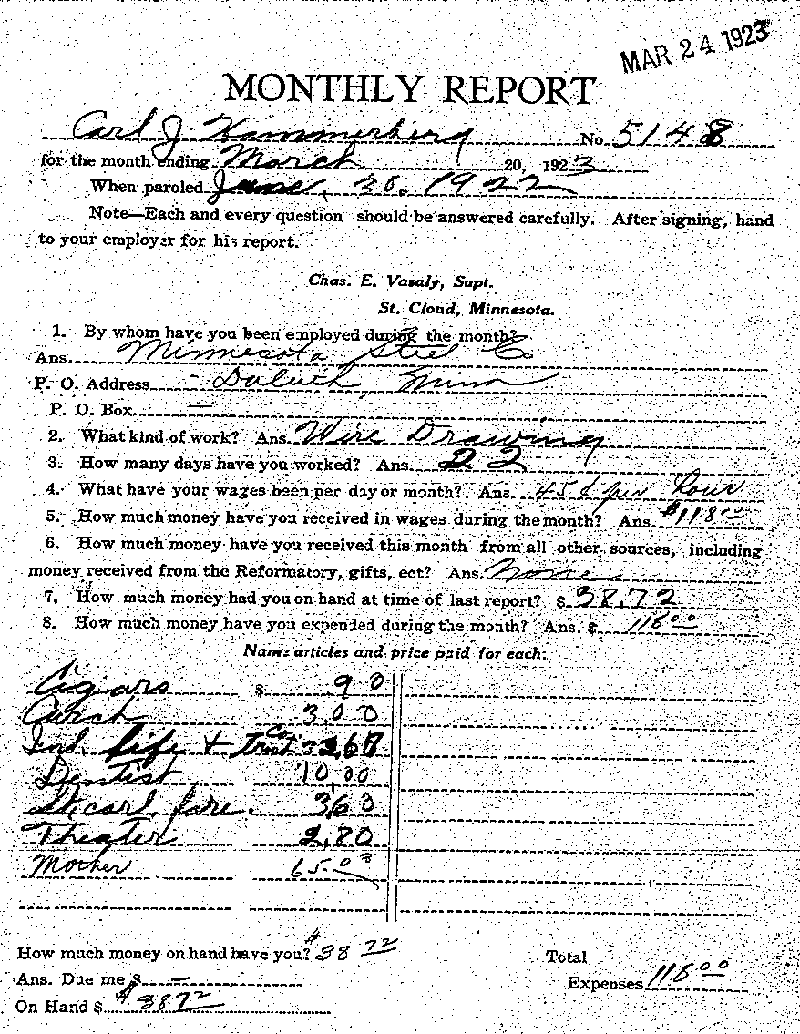 MAR 24 1923
MONTHLY REPORT
Carl J Hammerberg No. 5148
for the month ending March 20, 1923
When paroled June, 30, 1922
Note—Each and every question should be answered carefully. After signing, hand
to your employer for his report.
Chas. E. Vasaly, Supt.
St. Cloud, Minnesota.
1. By whom have you been employed during the month?
Ans. Minnesota Steel Co
P. O. Address Duluth, Minn
P. O. Box —
2. What kind of work? Ans. Wire Drawing
3. How many days have you worked? Ans. 22
4. What have your wages been per day or month? Ans. 45¢ per hour
5. How much money have you received in wages during the month? Ans. $118.00
6. How much money have you received this month from all other sources, including
money received from the Reformatory, gifts, ect? Ans. None
7. How much money had you on hand at time of last report? $ 38.72
8. How much money have you expended during the month? Ans. $ 118.00
Name articles and price paid for each:
Cigars $ 90
3.00
Ind. life + trust Co
Dentist 10,00
St. carl fare. 360
Theater 2,80
Mother 65.00
How much money on hand have you? $38 72
Ans. Due me $ —
On Hand $ $ 3872
Total
Expenses 118.00